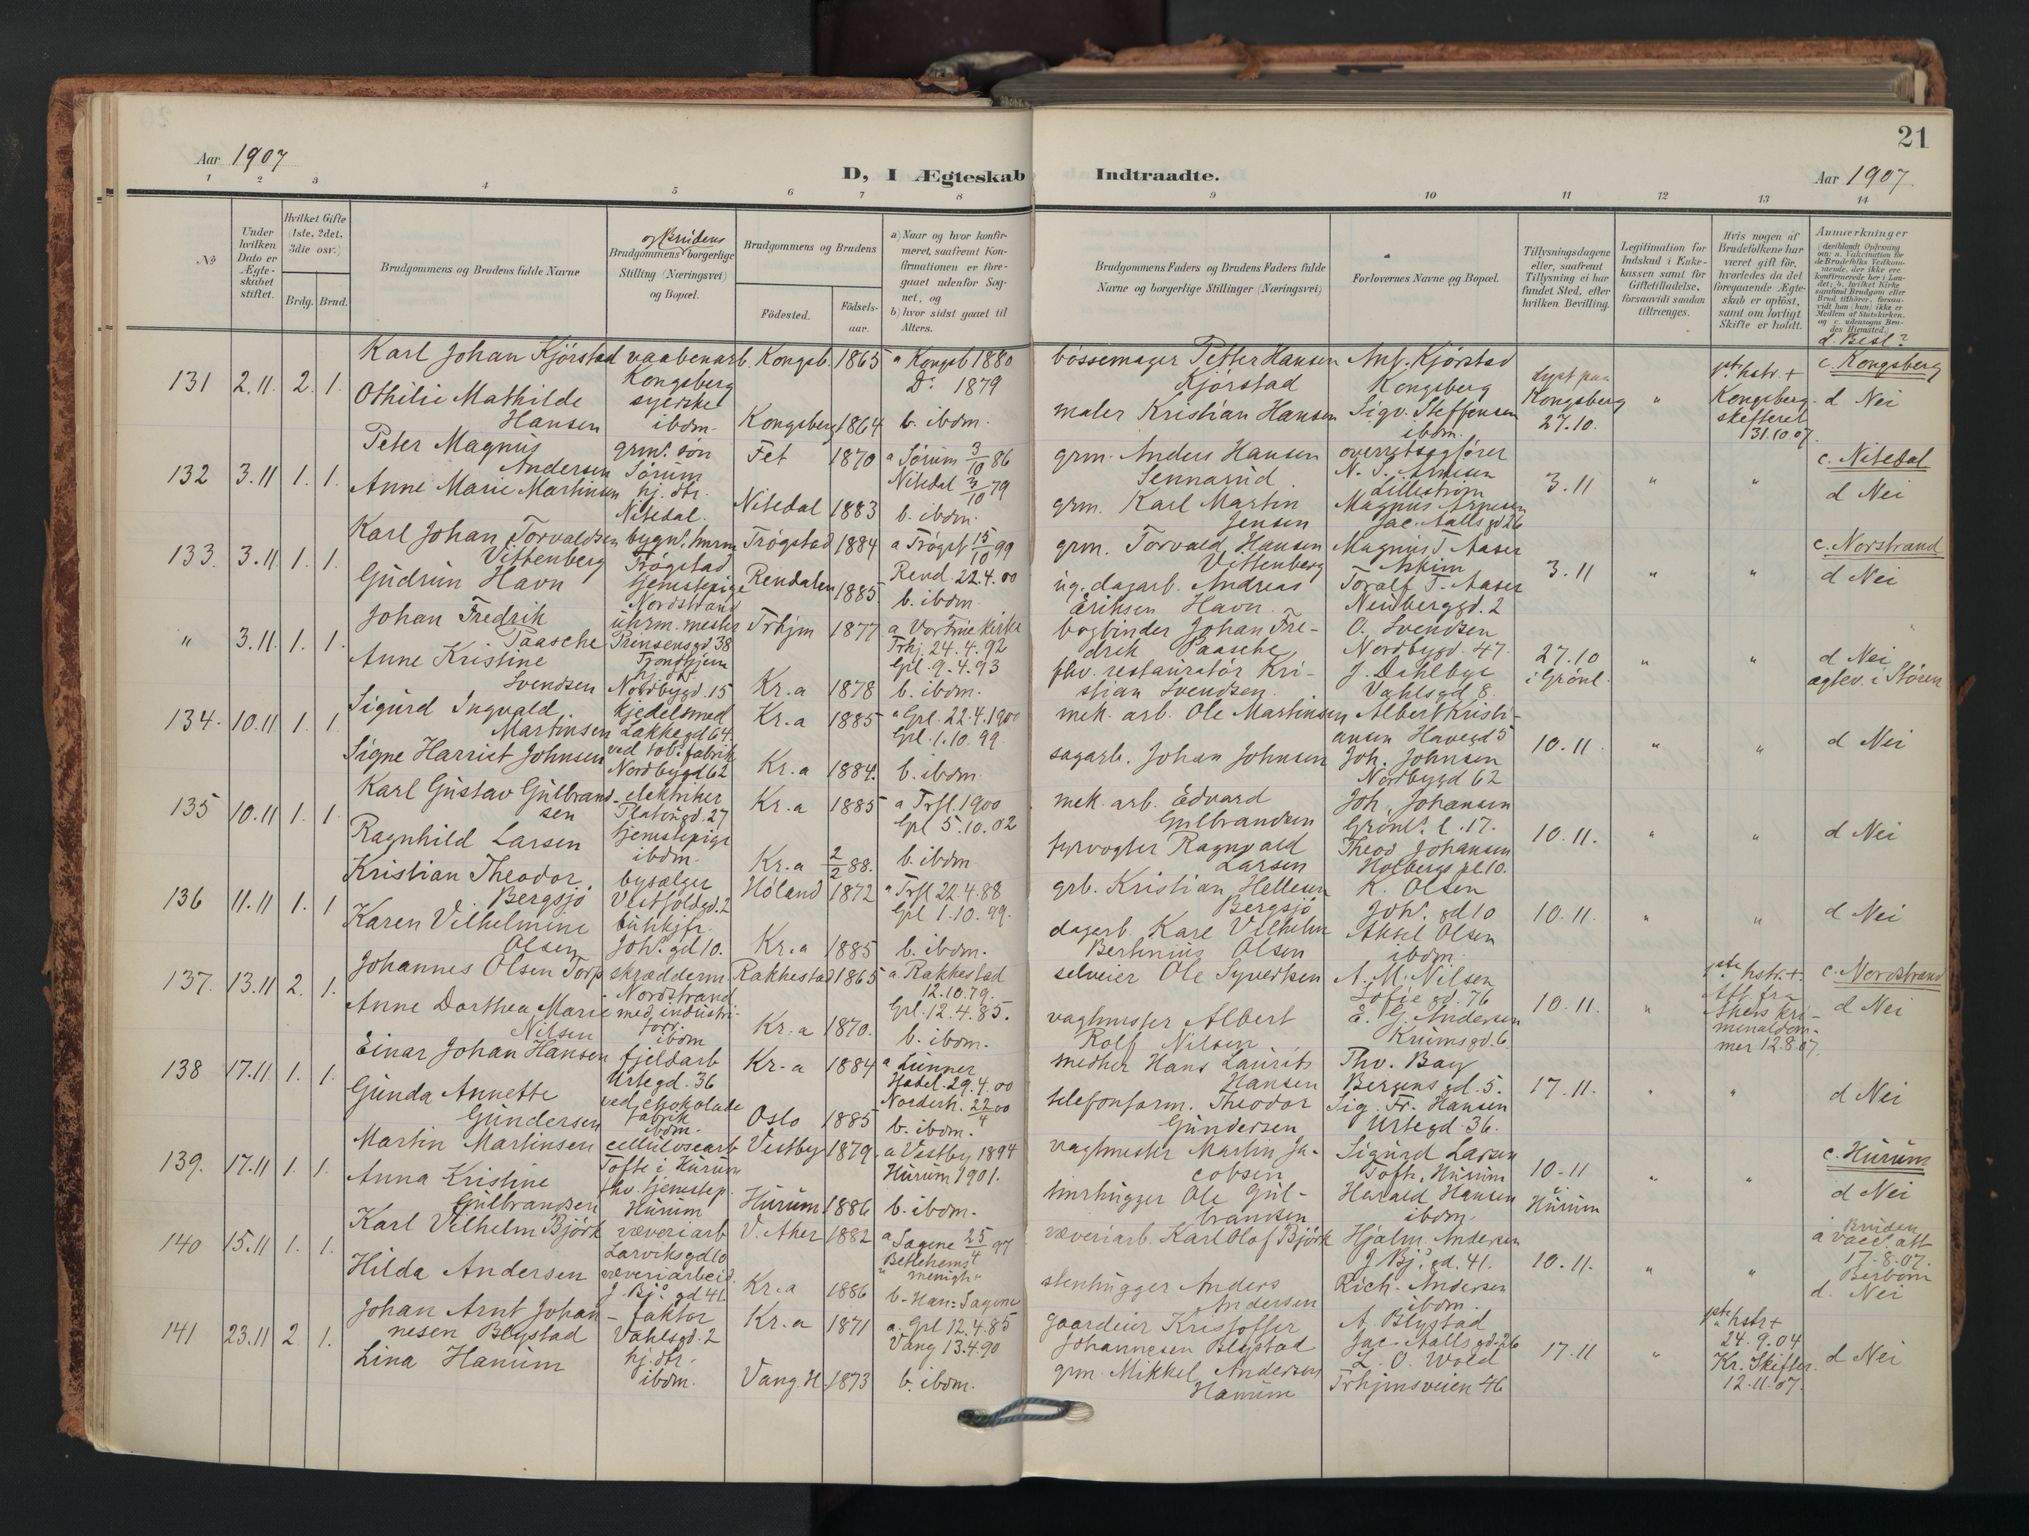 21
Aar 1907
D, I Ægteskab Indtraadte.
Aar 1907.
1 2 3 4 5 6 7 8 9 10 11 12 13 14
No
Under hvilken Dato er Ægteskabet stiftet.
Hvilket Gifte (1ste, 2det, 3die osv.)
Brdg. Brud.
Brudgommens og Brudens fulde Navne
Brudgommens og Brudens borgerlige Stilling (Næringsvei) og Bopæl.
Brudgommens og Brudens
Fødested. Fødselsaar.
a) Naar og hvor konfirmeret, saafremt Konfirmationen er foregaaet udenfor Sognet, og
b) hvor sidst gaaet til Alters.
Brudgommens Faders og Brudens Faders fulde Navne og borgerlige Stillinger (Næringsvei)
Forlovernes Navne og Bopæl.
Tillysningsdagene eller, saafremt Tillysning ei har fundet Sted, efter hvilken Bevilling.
Legitimation for Indskud i Enkekassen samt for Giftetilladelse, forsaavidt saadan tiltrænges.
Hvis nogen af Brudefolkene har været gift før, hvorledes da det foregaaende Ægteskab er opløst, samt om lovligt Skifte er holdt.
Anmærkninger
d. Besl?
131 2.11. 2. 1.
Karl Johan Kjørstad
Othilie Mathilde
Hansen
vaabenarb.
Kongsberg
syerske
ibdm.
Kongsb. 1865
Kongsberg 1864
a Kongsb 1880
Do 1879
b. ibdm.
bøssemager Petter Hansen
Kjørstad
maler Kristian Hansen
Ant. Kjørstad
Kongsberg
Sigv. Steffensen
ibdm.
lyst paa
Kongsberg
27.10.
"
hstr. +
Kongsberg.
skifteret
31.10.07.
c. Kongsberg
d Nei
132 3.11 1. 1.
Peter Magnus
Andersen
Anne Marie Martinsen
grms. søn
Sørum
hj. dtr.
Nitedal.
Fet 1870
Nitedal 1883
a Sørum 3/10 86
Nitedal 79
b. ibdm.
grm. Anders Hansen
Sennarud.
grm. Karl Martin
Jensen
overretssagfører
Lillestrøm
Magnus Arnesen
Jac. Aalls gd 26
3.11
" "
c. Nitedal
d Nei
133. 3.11 1. 1.
Karl Johan Torvaldsen
Vittenberg
Gudrun Havn
Trøgstad
tjenestepige
Nordstrand
Trøgstad 1884
Rendalen 1885
a Trøgst 15/10 99
Rend. 22.4.00
b. ibdm.
grm. Torvald Hansen
Vittenberg
ug. dagarb. Andreas
Eriksen Havn.
Magnus T. Aaser
Askim
Toralf T. Aaser
Neuberggd. 2
3.11
" "
c. Norstrand
d Nei
" 3.11. 1. 1.
Johan Fredrik
Paasche
Anne Kristine
Svendsen
Prinsensgd 38
Tronhjem
hj. dtr.
Nordbygd. 15
Trhjm 1877.
Kr.a 1878
a Vor Frue kirke
Trhj. 24.4.92
Grl. 9.4.93
b. ibdm.
bogbinder Johan Fre-
drik Paasche
fhv. restauratør Kri-
stian Svendsen.
O. Svendsen
Nordbygd. 47.
J. Dahlbye
Vahlsgd 8.
27.10
i Grønl.
" "
d Nei
ægtev. i Støren
134. 10.11 1. 1.
Sigurd Ingvald
Martinsen
Signe Harriet Johnsen
kjedelsmed
Lakkegd 64.
ved tob. fabrik
Nordbygd 62
Kr.a 1885
Kr.a 1884.
a Grl. 22.4.1900
Grl. 1.10.99.
b. ibdm.
mek. arb. Ole Martinsen
sagarb. Johan Johnsen
Albert Kristi-
ansen Havegd 5
Joh. Johnsen
Nordbygd 62
10.11.
" "
d Nei
135 10.11 1. 1.
Karl Gustav Gulbrand-
sen
Ragnhild Larsen
elektriker
Platougd. 27
tjenestepige
ibdm.
Kr.a 1885
Kr.a 2/2 88.
a Trfl. 1900
Grl 5.10.02
b. ibdm
mek. arb. Edvard
Gulbrandsen
fyrvogter Ragnvald
Larsen
Joh. Johansen
Grønl. l. 17.
Theod Johansen
Holbergs pl 10.
10.11.
" "
d Nei
136 11.11 1. 1
Kristian Theodor
Bergsjø
Karen Vilhelmine
Olsen
bysælger
Vestfoldgd. 2
butikjfr.
Johs. gd 10.
Høland 1872
Kr.a 1885
a Trfl 22.4.88
Grl 1.10.99.
b. ibdm.
grb. Kristian Hellesen
Bergsjø
dagarb. Karl Vilhelm
Bertinius Olsen
K. Olsen
Johs. gd 10
Aksel Olsen
ibdm.
10.11.
" "
d Nei
137. 13.11 2. 1.
Johannes Olsen Torp
Anne Dorthea Marie
Nilsen
skrædderm
Nordstrand
ibdm
Rakkestad 1865
Kr.a 1870.
a. Rakkestad
12.10.79.
Grl. 12.4.85.
b. ibdm.
selveier Ole Syvertsen
vagtmester Albert
Rolf Nilsen
A. M. Nilsen
Sofie gd. 76
E. G. Andersen
Krumsgd. 6
10.11
"
hstr. +
Att. fra
Akers kri-
minaldom-
mer 12.8.07.
c. Nordstrand
d Nei
138 17.11 1. 1.
Einar Johan Hansen
Gunda Annette
Gundersen
fjeldarb
Urtegd. 36
ved chokolade
fabrik
ibdm.
Kr.a 1884
Oslo 1885
a Lunner
Hadel. 29.4.00
Norderh. 22/4 00
b. ibdm.
Hans Laurits
Hansen
telefonform. Theodor
Gundersen
Thv. Bay
Bergens gd. 5.
Sig. Fr. Hansen
Urtegd 36.
17.11.
" "
d Nei
139. 17.11 1. 1.
Martin Martinsen
Anna Kristine
Gulbrandsen
cellulosearb
Tofte i Hurum
fhv. tjenestep.
Hurum
Vestby 1879
Hurum 1886
a Vestby 1894
Hurum 1901.
b. ibdm.
vagtmester Martin Ja-
cobsen
tømrhugger Ole Gul-
brandsen
Sigurd Larsen
Tofte, Hurum
Herald Hansen
ibdm.
10-11
i
Hurum
" "
c. Hurum
d Nei
140 15.11 1. 1.
Karl Vilhelm Bjørk
Hilda Andersen
væveriarb
Larviksgd 10
væveriarbeid.
J. Bjs gd 41.
V. Aker 1882
Kr.a 1886
a Sagene 25/4 97
Betlehems
menigh"
b. Han: Sagene
væveriarb. Karl Olof Bjørk
stenhugger Anders
Andersen
Hjalm. Andersen
J Bjs. gd. 41.
Rich. Andersen
ibdm.
10.11.
" "
Bruden
a vacc. att
17.8.07.
d. Nei
141 23.11 2. 1.
Johan Arnt Johan-
nesen Blystad
Lina Hanum
faktor
Vahlsgd. 2
hj. dtr.
ibdm.
Kr.a 1871
Vang. H. 1873
a. Grl 12.4.85
Vang 13.4.90
b. ibdm.
gaardeier Kristoffer
Johannesen Blystad
grm. Mikkel Andersen
Hanum
A. Blystad
Jac. Aalls gd. 26
L. O. Wold
Trhjmsveien 46
17.11
"
hstr +
24.9.04
Kr. Skifter.
12.11.07.
d Nei